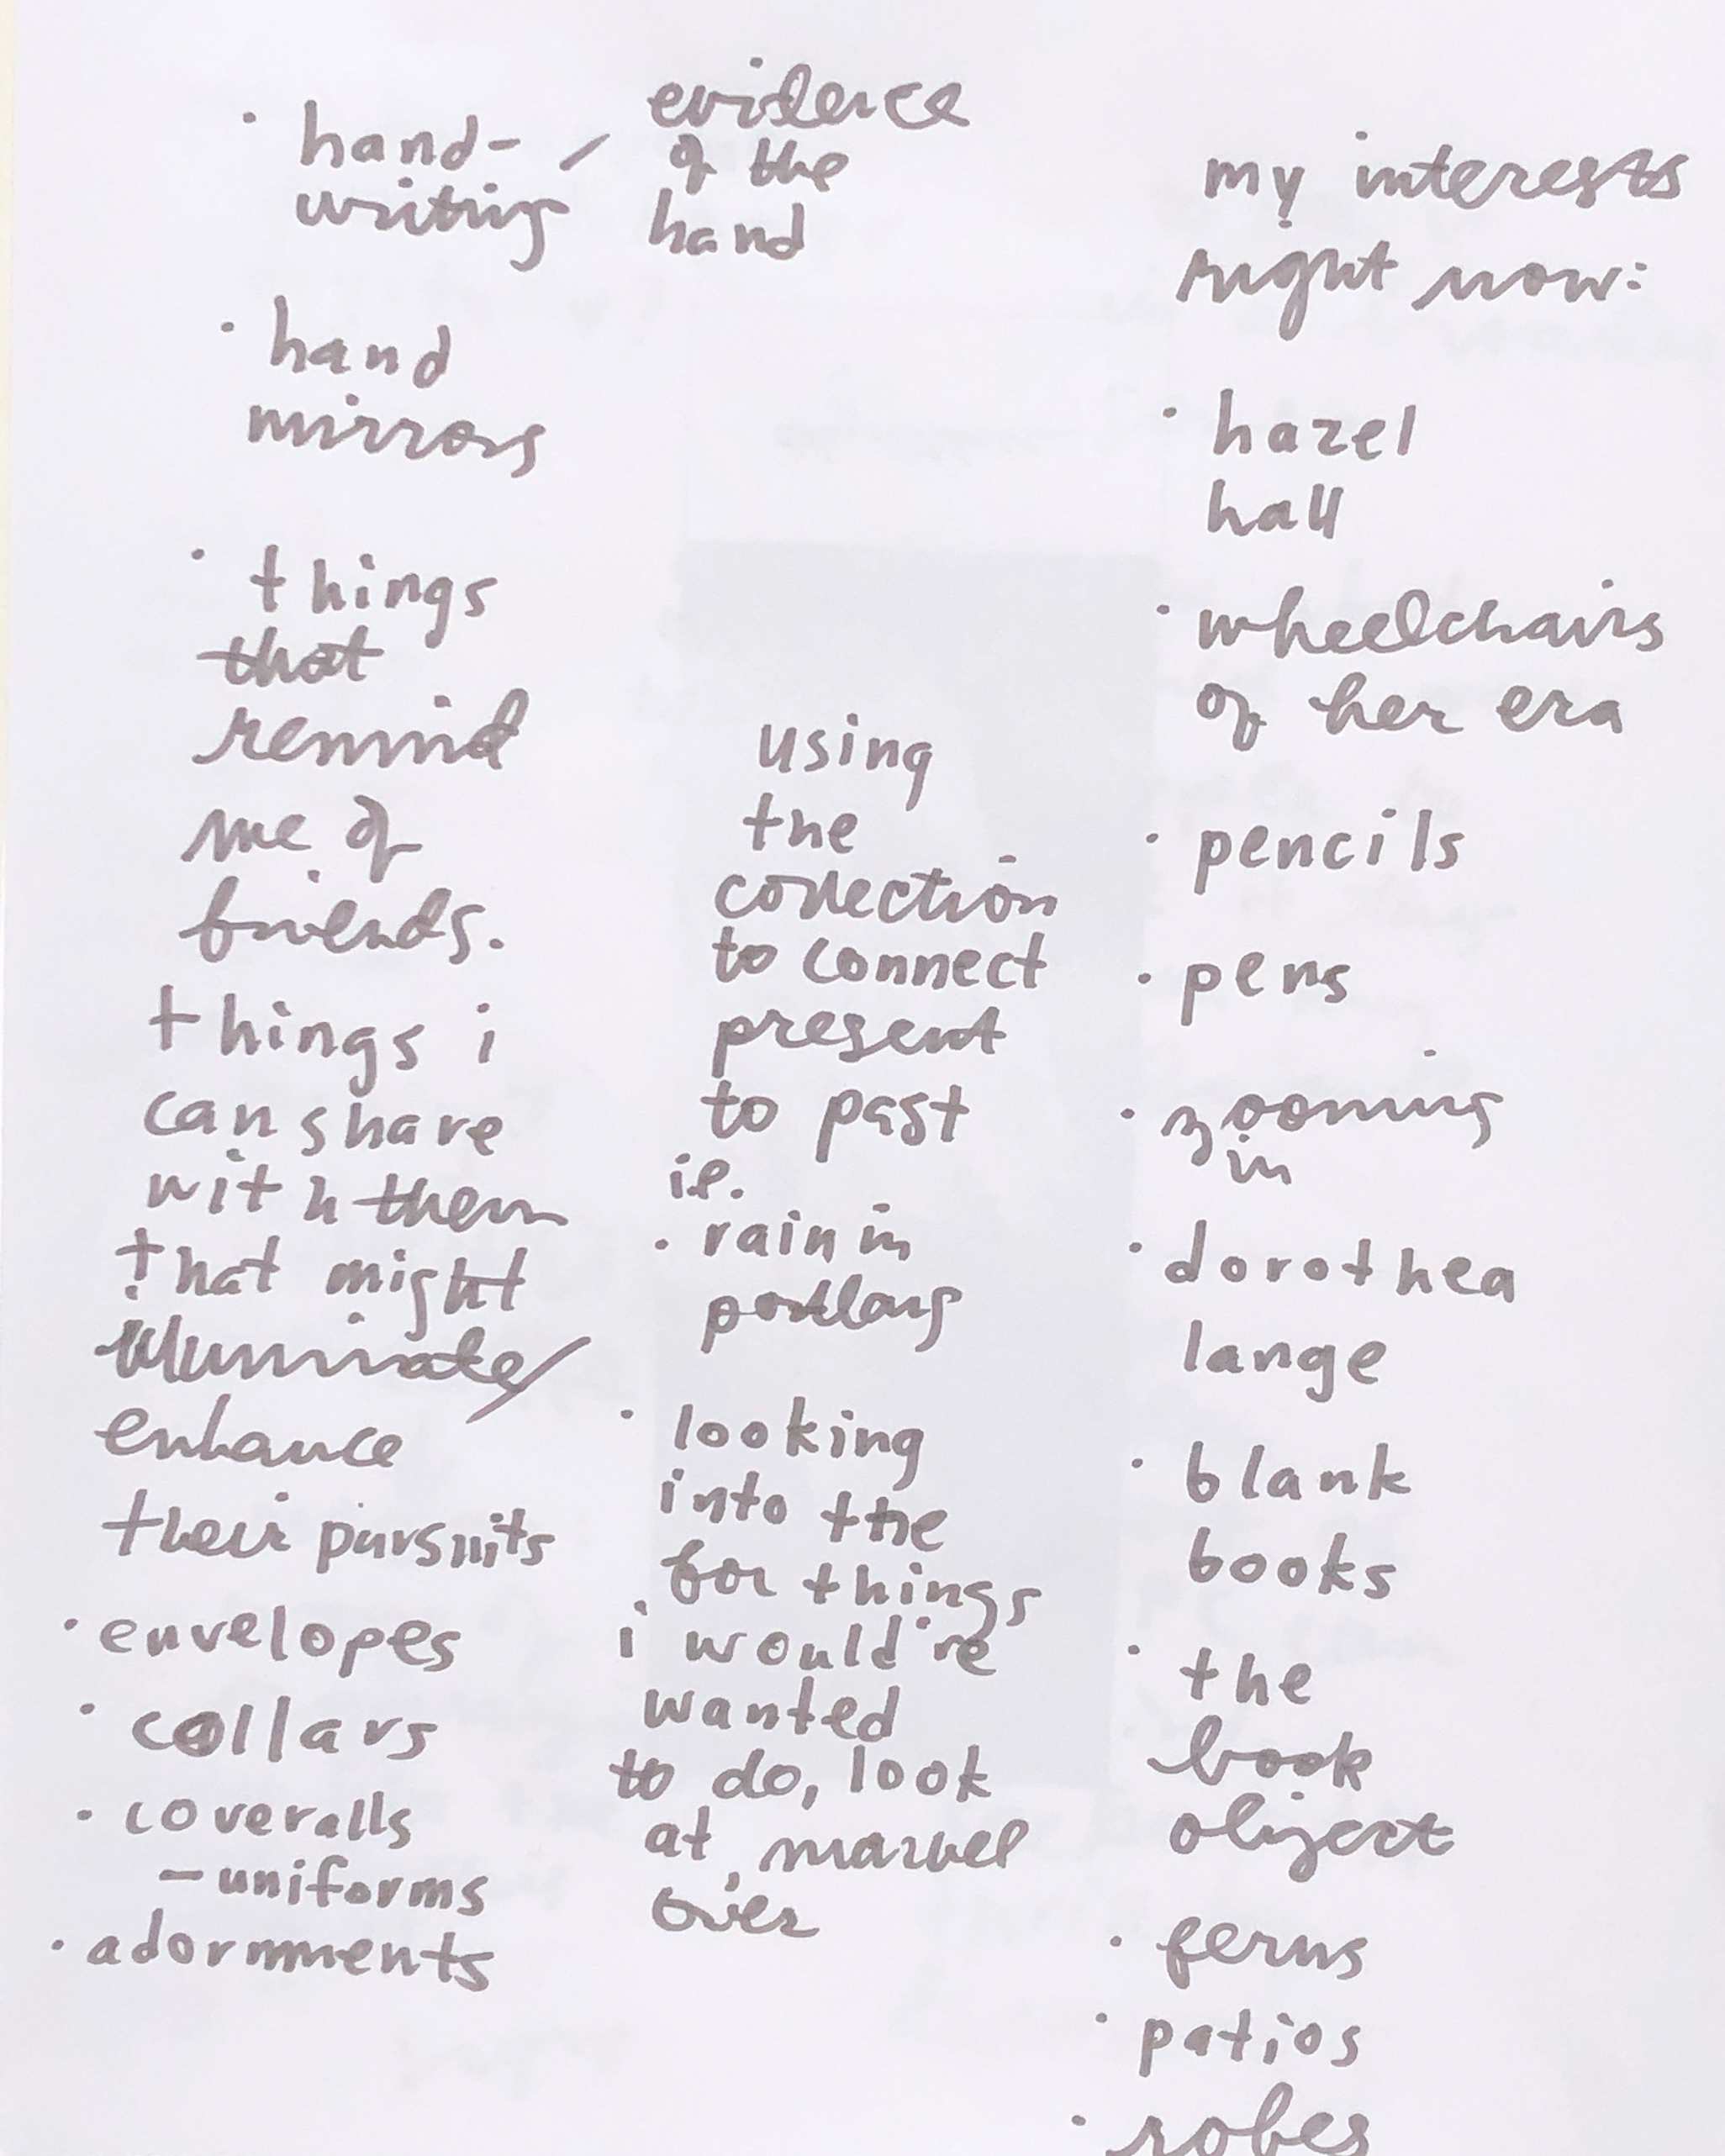 my interests
right now:
· hazel
hall
· wheelchairs
of her era
· pencils
· pens
· zooming
in
· dorothea
lange
· blank
books
· the
book
object
· ferns
· patios
· robes
· hand- / evidence
writing of the
hand
· hand
mirrors
· things
that
remind
me of
friends.
things i
can share
with them
that might
illuminate/
enhance
their pursuits
· envelopes
· collars
· coveralls
- uniforms
· adornments
using
the
collection
to connect
present
to past
ie.
· rain in
portland
· looking
into the
for things
i would've
wanted
to do, look
at, marvel
over